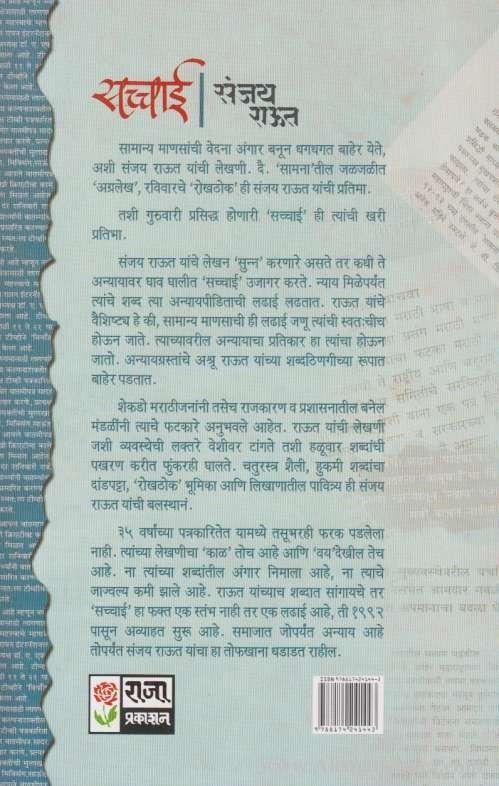 सच्चाई
संजय
राऊत
सामान्य माणसांची वेदना अंगार बनून धगधगत बाहेर येते,
अशी संजय राऊत यांची लेखणी. दै. 'सामना'तील जळजळीत
'अग्रलेख', रविवारचे 'रोखठोक' ही संजय राऊत यांची प्रतिमा.
तशी गुरुवारी प्रसिद्ध होणारी 'सच्चाई' ही त्यांची खरी
प्रतिभा.
संजय राऊत यांचे लेखन 'सुन्न' करणारे असते तर कधी ते
अन्यायावर घाव घालीत 'सच्चाई' उजागर करते. न्याय मिळेपर्यंत
त्यांचे शब्द त्या अन्यायपीडिताची लढाई लढतात. राऊत यांचे
वैशिष्ट्य हे की, सामान्य माणसाची ही लढाई जणू त्यांची स्वतःचीच
होऊन जाते. त्याच्यावरील अन्यायाचा प्रतिकार हा त्यांचा होऊन
जातो. अन्यायग्रस्तांचे अश्रू राऊत यांच्या शब्दठिणगीच्या रूपात
बाहेर पडतात.
शेकडो मराठीजनांनी तसेच राजकारण व प्रशासनातील बनेल
मंडळींनी त्याचे फटकारे अनुभवले आहेत. राऊत यांची लेखणी
जशी व्यवस्थेची लक्तरे वेशीवर टांगते तशी हळूवार शब्दांची
पखरण करीत फुंकरही घालते. चतुरस्त्र शैली, हुकमी शब्दांचा
दांडपट्टा, 'रोखठोक' भूमिका आणि लिखाणातील पावित्र्य ही संजय
राऊत यांची बलस्थानं.
३५ वर्षांच्या पत्रकारितेत यामध्ये तसूभरही फरक पडलेला
नाही. त्यांच्या लेखणीचा 'काळ' तोच आहे आणि 'वय'देखील तेच
आहे. ना त्यांच्या शब्दांतील अंगार निमाला आहे, ना त्याचे
जाज्वल्य कमी झाले आहे. राऊत यांच्याच शब्दात सांगायचे तर
'सच्चाई' हा फक्त एक स्तंभ नाही तर एक लढाई आहे, ती १९९२
पासून अव्याहत सुरू आहे. समाजात जोपर्यंत अन्याय आहे
तोपर्यंत संजय राऊत यांचा हा तोफखाना धडाडत राहील.
राजा
प्रकाशन